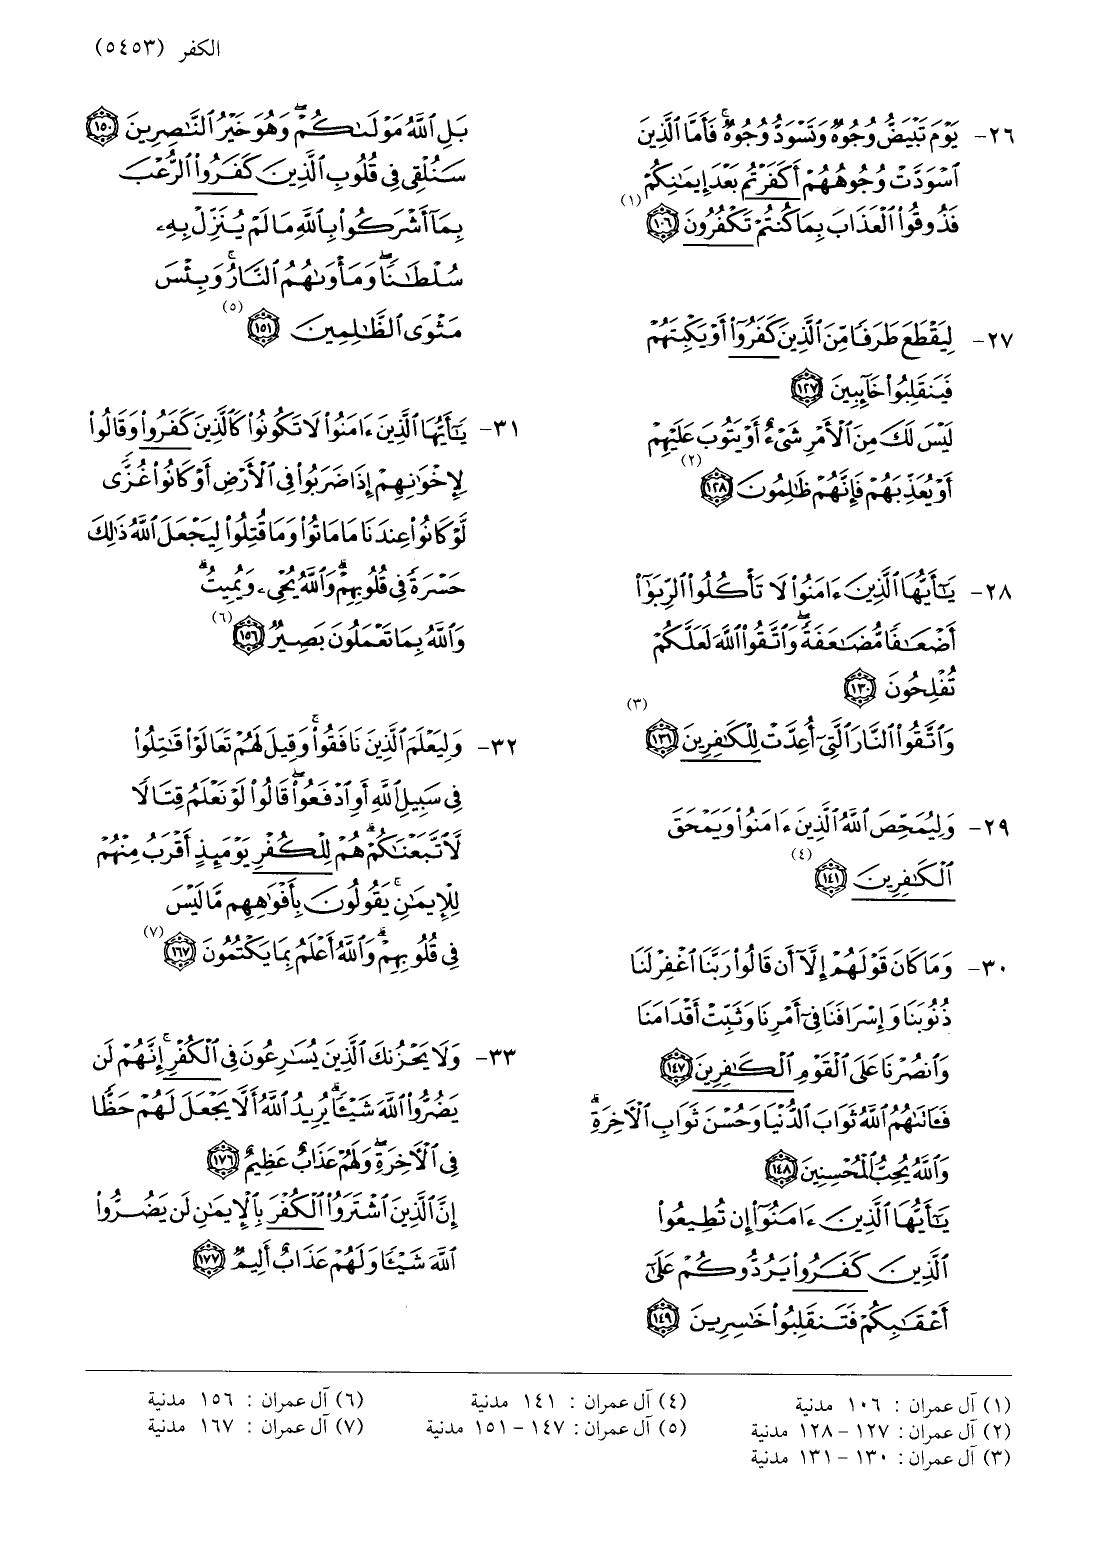 الكفر (٥٤٥٣)
٢٦- يَوْمَ تَبْيَضُّ وُجُوهٌ وَتَسْوَدُّ وُجُوهٌ ۚ فَأَمَّا ٱلَّذِينَ
ٱسْوَدَّتْ وُجُوهُهُمْ أَكَفَرْتُم بَعْدَ إِيمَـٰنِكُمْ
فَذُوقُوا۟ ٱلْعَذَابَ بِمَا كُنتُمْ تَكْفُرُونَ ١٠٦ (١)
٢٧- لِيَقْطَعَ طَرَفًا مِّنَ ٱلَّذِينَ كَفَرُوٓا۟ أَوْ يَكْبِتَهُمْ
فَيَنقَلِبُوا۟ خَآئِبِينَ ١٢٧
لَيْسَ لَكَ مِنَ ٱلْأَمْرِ شَىْءٌ أَوْ يَتُوبَ عَلَيْهِمْ
أَوْ يُعَذِّبَهُمْ فَإِنَّهُمْ ظَـٰلِمُونَ ١٢٨ (٢)
٢٨- يَـٰٓأَيُّهَا ٱلَّذِينَ ءَامَنُوا۟ لَا تَأْكُلُوا۟ ٱلرِّبَوٰٓا۟
أَضْعَـٰفًا مُّضَـٰعَفَةً ۖ وَٱتَّقُوا۟ ٱللَّهَ لَعَلَّكُمْ
تُفْلِحُونَ ١٣٠
وَٱتَّقُوا۟ ٱلنَّارَ ٱلَّتِىٓ أُعِدَّتْ لِلْكَـٰفِرِينَ ١٣١ (٣)
٢٩- وَلِيُمَحِّصَ ٱللَّهُ ٱلَّذِينَ ءَامَنُوا۟ وَيَمْحَقَ
ٱلْكَـٰفِرِينَ ١٤١ (٤)
٣٠- وَمَا كَانَ قَوْلَهُمْ إِلَّآ أَن قَالُوا۟ رَبَّنَا ٱغْفِرْ لَنَا
ذُنُوبَنَا وَإِسْرَافَنَا فِىٓ أَمْرِنَا وَثَبِّتْ أَقْدَامَنَا
وَٱنصُرْنَا عَلَى ٱلْقَوْمِ ٱلْكَـٰفِرِينَ ١٤٧
فَـَٔاتَىٰهُمُ ٱللَّهُ ثَوَابَ ٱلدُّنْيَا وَحُسْنَ ثَوَابِ ٱلْـَٔاخِرَةِ ۗ
وَٱللَّهُ يُحِبُّ ٱلْمُحْسِنِينَ ١٤٨
يَـٰٓأَيُّهَا ٱلَّذِينَ ءَامَنُوٓا۟ إِن تُطِيعُوا۟
ٱلَّذِينَ كَفَرُوا۟ يَرُدُّوكُمْ عَلَىٰٓ
أَعْقَـٰبِكُمْ فَتَنقَلِبُوا۟ خَـٰسِرِينَ ١٤٩
بَلِ ٱللَّهُ مَوْلَىٰكُمْ ۖ وَهُوَ خَيْرُ ٱلنَّـٰصِرِينَ ١٥٠
سَنُلْقِى فِى قُلُوبِ ٱلَّذِينَ كَفَرُوا۟ ٱلرُّعْبَ
بِمَآ أَشْرَكُوا۟ بِٱللَّهِ مَا لَمْ يُنَزِّلْ بِهِۦ
سُلْطَـٰنًا ۖ وَمَأْوَىٰهُمُ ٱلنَّارُ ۚ وَبِئْسَ
مَثْوَى ٱلظَّـٰلِمِينَ ١٥١ (٥)
٣١- يَـٰٓأَيُّهَا ٱلَّذِينَ ءَامَنُوا۟ لَا تَكُونُوا۟ كَٱلَّذِينَ كَفَرُوا۟ وَقَالُوا۟
لِإِخْوَٰنِهِمْ إِذَا ضَرَبُوا۟ فِى ٱلْأَرْضِ أَوْ كَانُوا۟ غُزًّى
لَّوْ كَانُوا۟ عِندَنَا مَا مَاتُوا۟ وَمَا قُتِلُوا۟ لِيَجْعَلَ ٱللَّهُ ذَٰلِكَ
حَسْرَةً فِى قُلُوبِهِمْ ۗ وَٱللَّهُ يُحْىِۦ وَيُمِيتُ ۗ
وَٱللَّهُ بِمَا تَعْمَلُونَ بَصِيرٌ ١٥٦ (٦)
٣٢- وَلِيَعْلَمَ ٱلَّذِينَ نَافَقُوا۟ ۚ وَقِيلَ لَهُمْ تَعَالَوْا۟ قَـٰتِلُوا۟
فِى سَبِيلِ ٱللَّهِ أَوِ ٱدْفَعُوا۟ ۖ قَالُوا۟ لَوْ نَعْلَمُ قِتَالًا
لَّٱتَّبَعْنَـٰكُمْ ۗ هُمْ لِلْكُفْرِ يَوْمَئِذٍ أَقْرَبُ مِنْهُمْ
لِلْإِيمَـٰنِ ۚ يَقُولُونَ بِأَفْوَٰهِهِم مَّا لَيْسَ
فِى قُلُوبِهِمْ ۗ وَٱللَّهُ أَعْلَمُ بِمَا يَكْتُمُونَ ١٦٧ (٧)
٣٣- وَلَا يَحْزُنكَ ٱلَّذِينَ يُسَـٰرِعُونَ فِى ٱلْكُفْرِ ۚ إِنَّهُمْ لَن
يَضُرُّوا۟ ٱللَّهَ شَيْـًٔا ۗ يُرِيدُ ٱللَّهُ أَلَّا يَجْعَلَ لَهُمْ حَظًّا
فِى ٱلْـَٔاخِرَةِ ۖ وَلَهُمْ عَذَابٌ عَظِيمٌ ١٧٦
إِنَّ ٱلَّذِينَ ٱشْتَرَوُا۟ ٱلْكُفْرَ بِٱلْإِيمَـٰنِ لَن يَضُرُّوا۟
ٱللَّهَ شَيْـًٔا وَلَهُمْ عَذَابٌ أَلِيمٌ ١٧٧
(١) آل عمران : ١٠٦ مدنية
(٢) آل عمران : ١٢٧ – ١٢٨ مدنية
(٣) آل عمران : ١٣٠ – ١٣١ مدنية
(٤) آل عمران : ١٤١ مدنية
(٥) آل عمران : ١٤٧ – ١٥١ مدنية
(٦) آل عمران : ١٥٦ مدنية
(٧) آل عمران : ١٦٧ مدنية